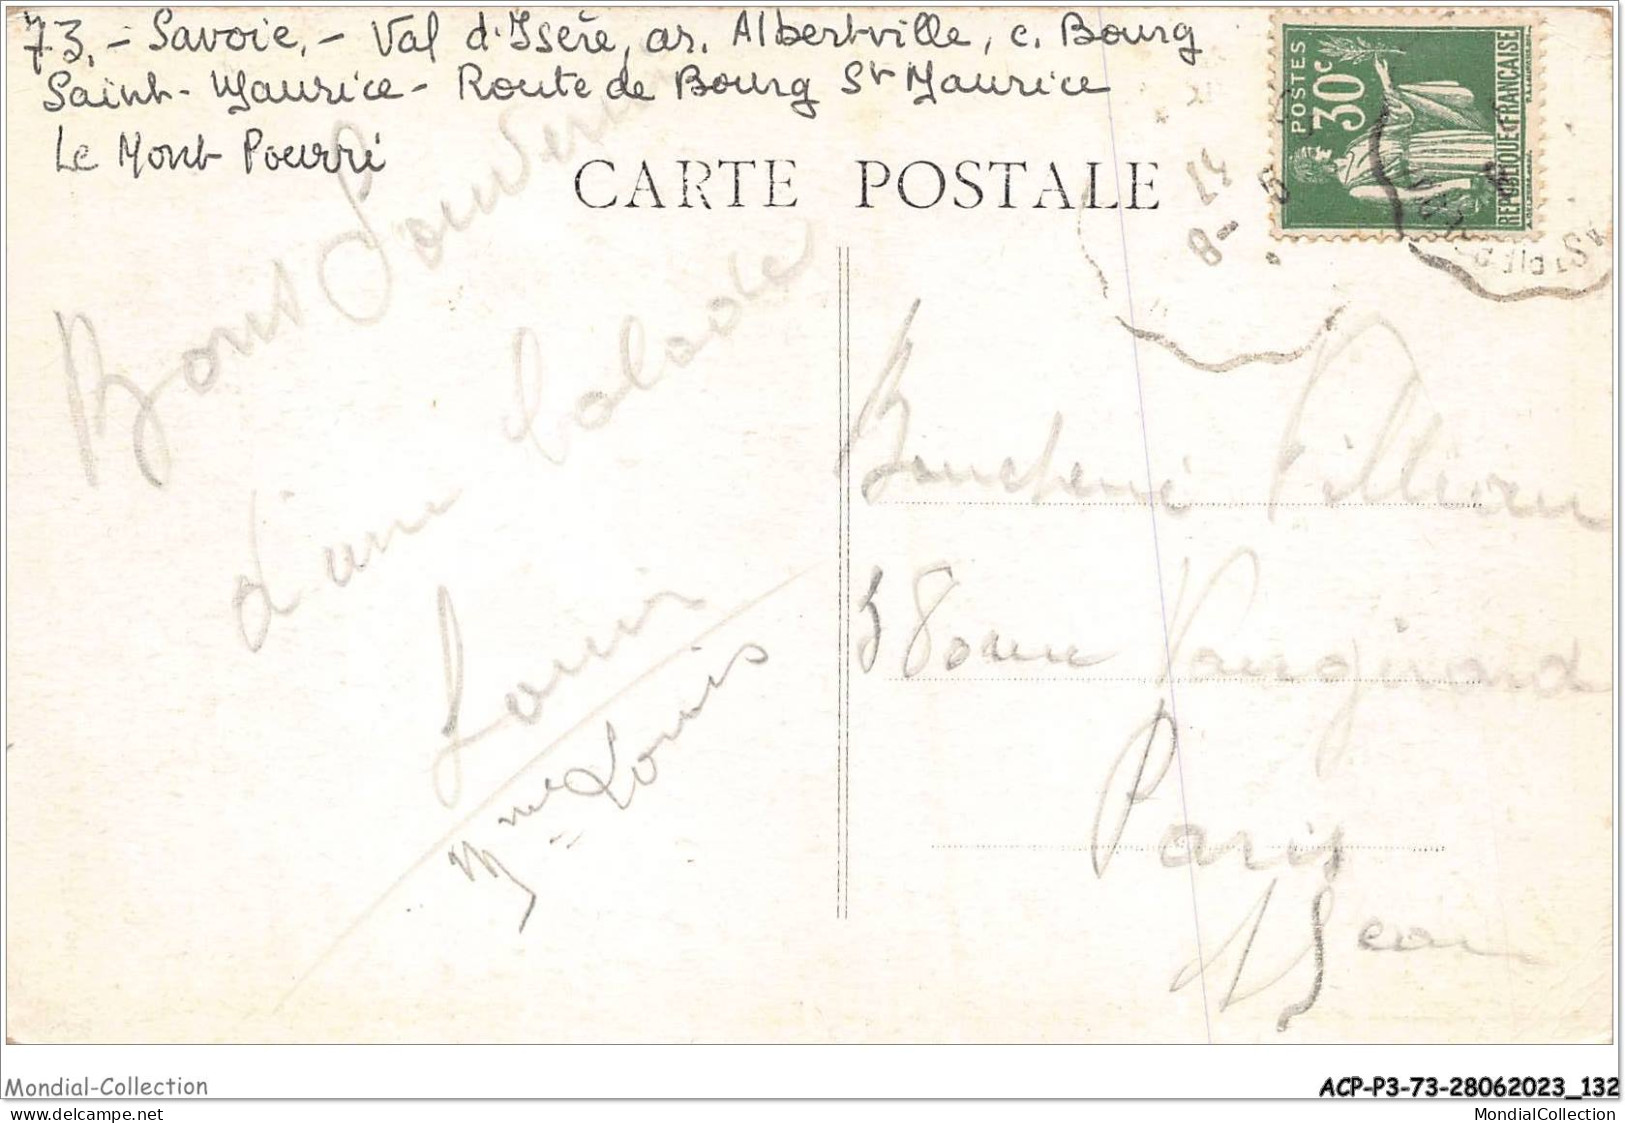 73. - Savoie. - Val d'Isère, ar. Albertville, c. Bourg
Saint-Maurice - Route de Bourg St Maurice
Le Mont Pourri
CARTE POSTALE
POSTES
30c
REPUBLIQUE FRANÇAISE
Bons Souvenirs
d'une balade
Louis
Mme Louis
rue Vaugirard
Paris
15eme
Mondial-Collection
ACP-P3-73-28062023_132
MondialCollection